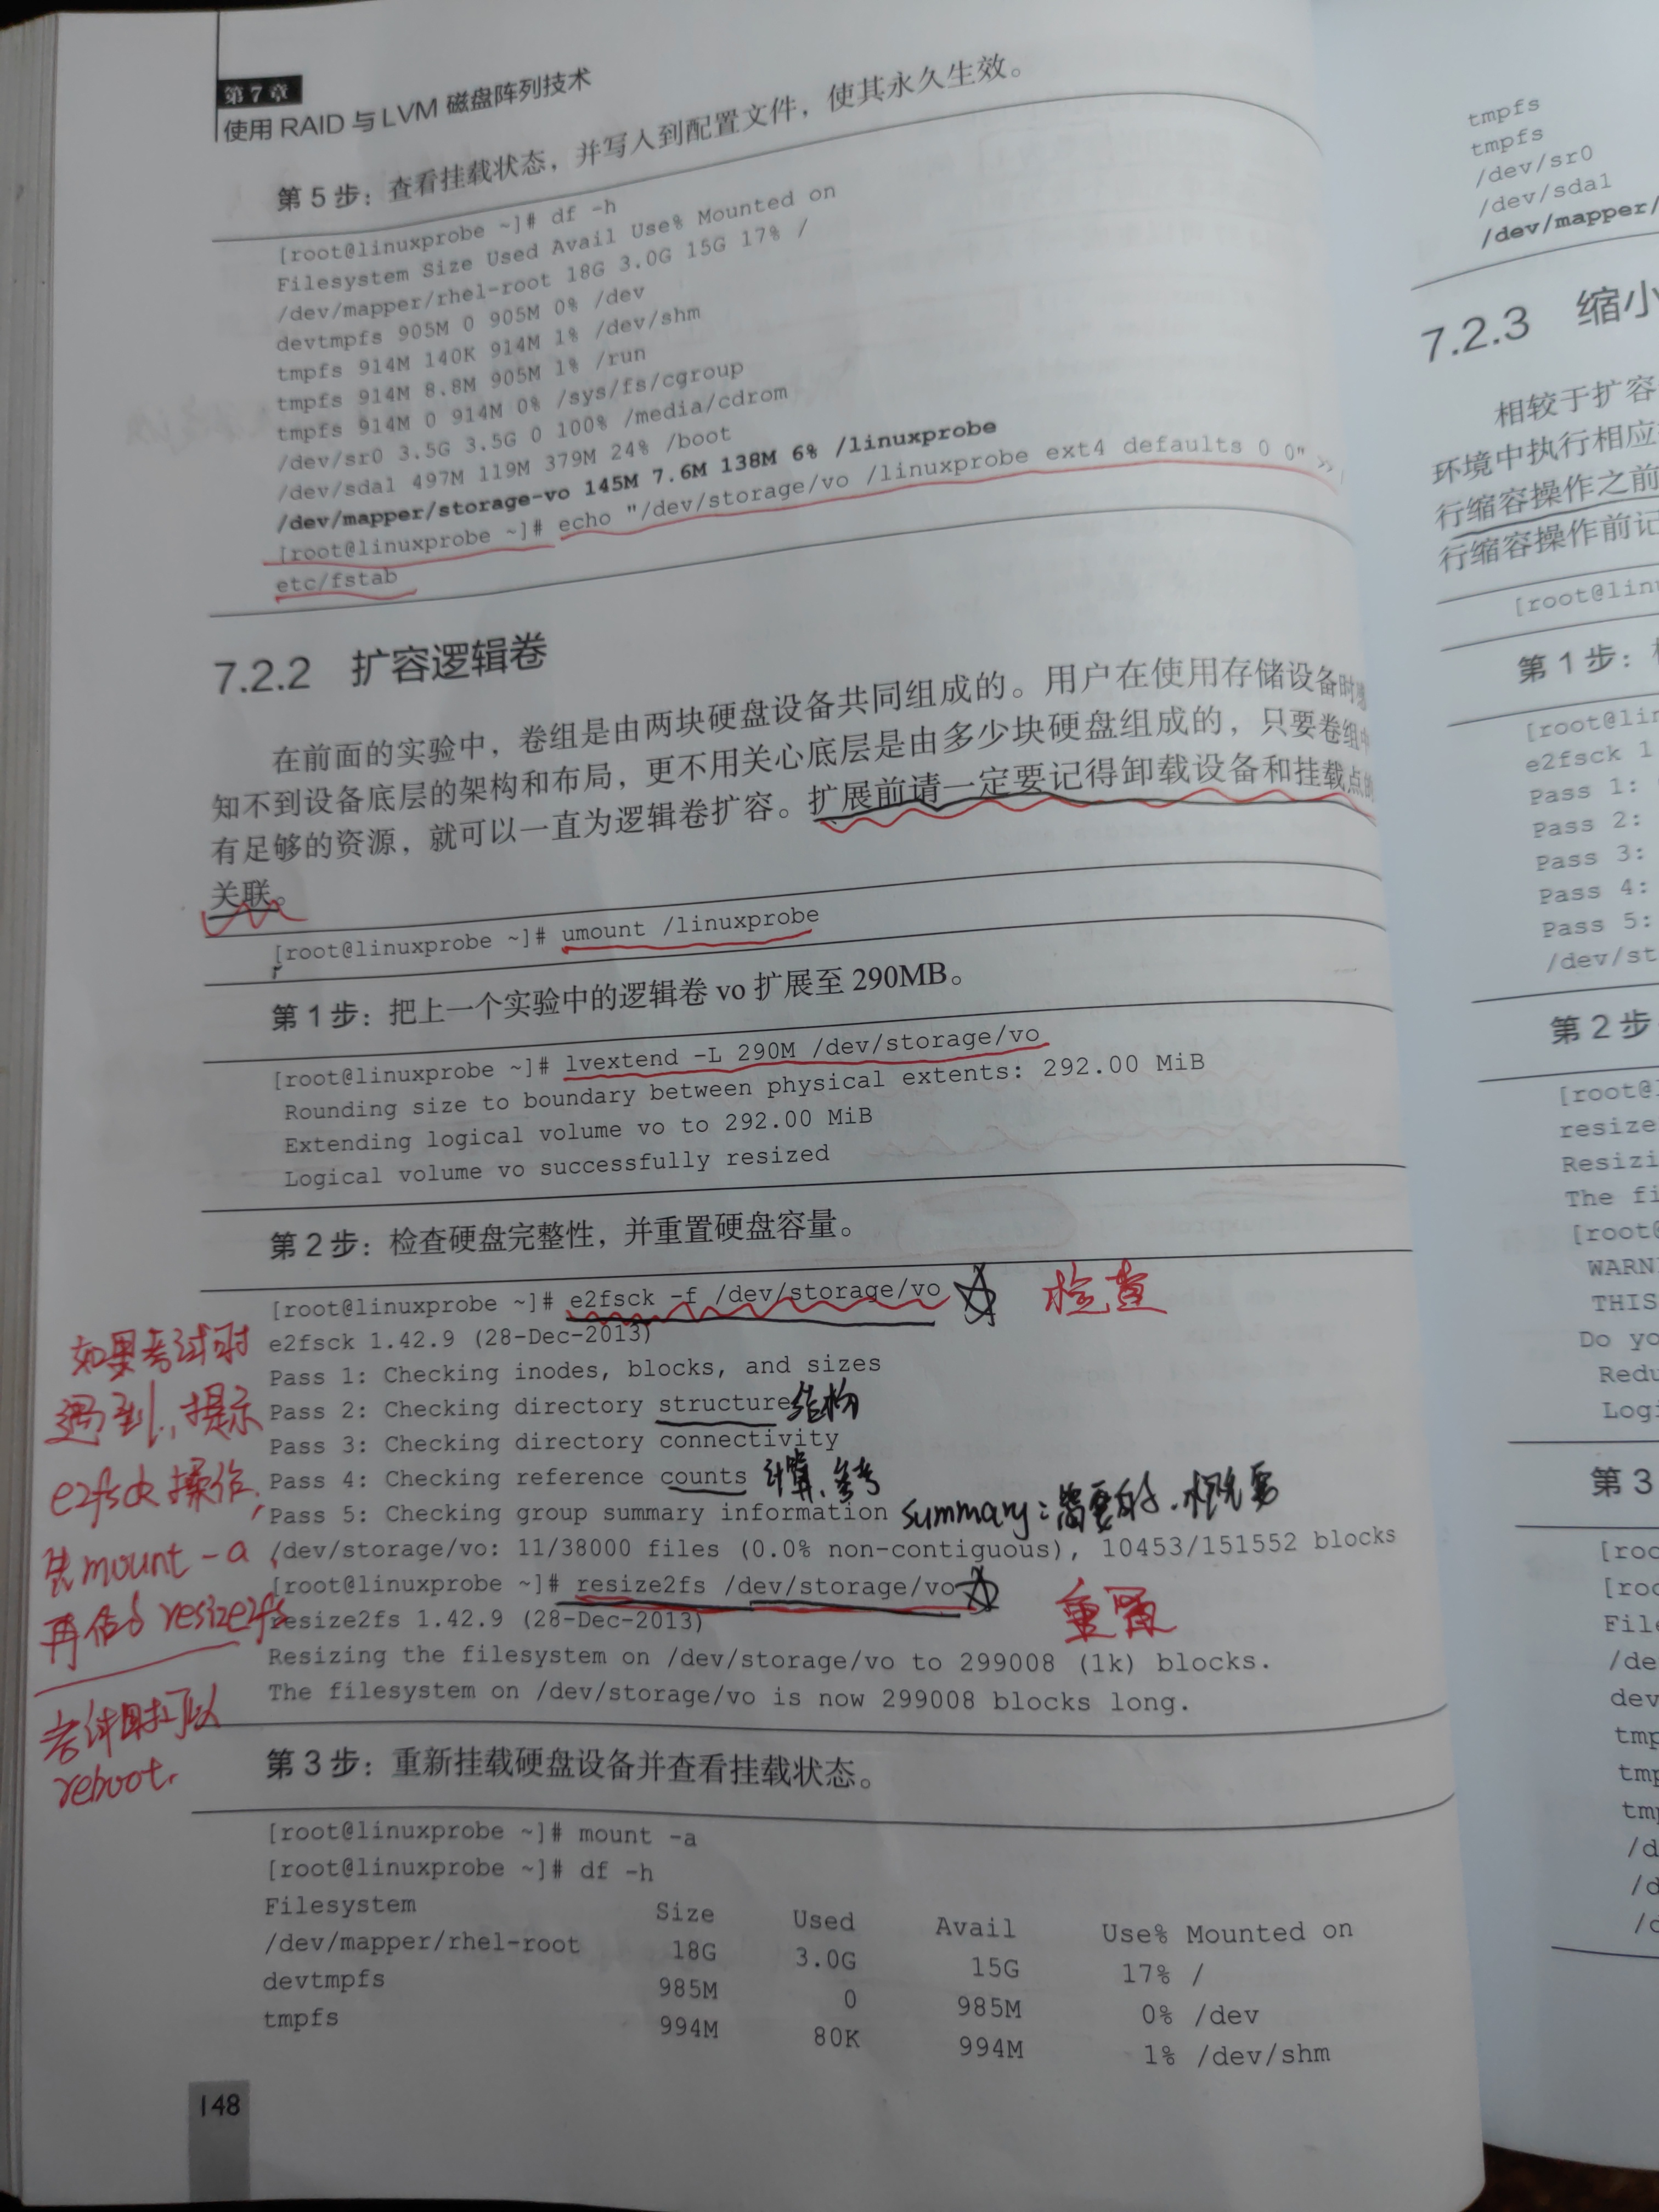 第7章
使用 RAID 与 LVM 磁盘阵列技术
第 5 步：查看挂载状态，并写入到配置文件，使其永久生效。
[root@linuxprobe ~]# df -h
Filesystem Size Used Avail Use% Mounted on
/dev/mapper/rhel-root 18G 3.0G 15G 17% /
devtmpfs 905M 0 905M 0% /dev
tmpfs 914M 140K 914M 1% /dev/shm
tmpfs 914M 8.8M 905M 1% /run
tmpfs 914M 0 914M 0% /sys/fs/cgroup
/dev/sr0 3.5G 3.5G 0 100% /media/cdrom
/dev/sda1 497M 119M 379M 24% /boot
/dev/mapper/storage-vo 145M 7.6M 138M 6% /linuxprobe
[root@linuxprobe ~]# echo "/dev/storage/vo /linuxprobe ext4 defaults 0 0" >>
etc/fstab
7.2.2 扩容逻辑卷
在前面的实验中，卷组是由两块硬盘设备共同组成的。用户在使用存储设备时
知不到设备底层的架构和布局，更不用关心底层是由多少块硬盘组成的，只要卷组中
有足够的资源，就可以一直为逻辑卷扩容。扩展前请一定要记得卸载设备和挂载点的
关联。
[root@linuxprobe ~]# umount /linuxprobe
第 1 步：把上一个实验中的逻辑卷 vo 扩展至 290MB。
[root@linuxprobe ~]# lvextend -L 290M /dev/storage/vo
Rounding size to boundary between physical extents: 292.00 MiB
Extending logical volume vo to 292.00 MiB
Logical volume vo successfully resized
第 2 步：检查硬盘完整性，并重置硬盘容量。
[root@linuxprobe ~]# e2fsck -f /dev/storage/vo 检查
e2fsck 1.42.9 (28-Dec-2013)
Pass 1: Checking inodes, blocks, and sizes
Pass 2: Checking directory structure 结构
Pass 3: Checking directory connectivity
Pass 4: Checking reference counts 计算、参考
Pass 5: Checking group summary information summary: 概要
/dev/storage/vo: 11/38000 files (0.0% non-contiguous), 10453/151552 blocks
[root@linuxprobe ~]# resize2fs /dev/storage/vo 重置
resize2fs 1.42.9 (28-Dec-2013)
Resizing the filesystem on /dev/storage/vo to 299008 (1k) blocks.
The filesystem on /dev/storage/vo is now 299008 blocks long.
如果考试时
遇到，提示
e2fsck 操作，
先 mount -a，
再 resize2fs
考试时可以
reboot.
第 3 步：重新挂载硬盘设备并查看挂载状态。
[root@linuxprobe ~]# mount -a
[root@linuxprobe ~]# df -h
Filesystem Size Used Avail Use% Mounted on
/dev/mapper/rhel-root 18G 3.0G 15G 17% /
devtmpfs 985M 0 985M 0% /dev
tmpfs 994M 80K 994M 1% /dev/shm
148
tmpfs
tmpfs
/dev/sr0
/dev/sda1
/dev/mapper/
7.2.3 缩小
相较于扩容
环境中执行相应
行缩容操作之前
行缩容操作前记
[root@lin
第 1 步：
[root@lin
e2fsck 1
Pass 1:
Pass 2:
Pass 3:
Pass 4:
Pass 5:
/dev/st
第 2 步
[root@
resize
Resizi
The fi
[root@
WARN
THIS
Do yo
Redu
Logi
第 3
[roo
[roo
File
/de
dev
tmp
tmp
tm
/d
/d
/d